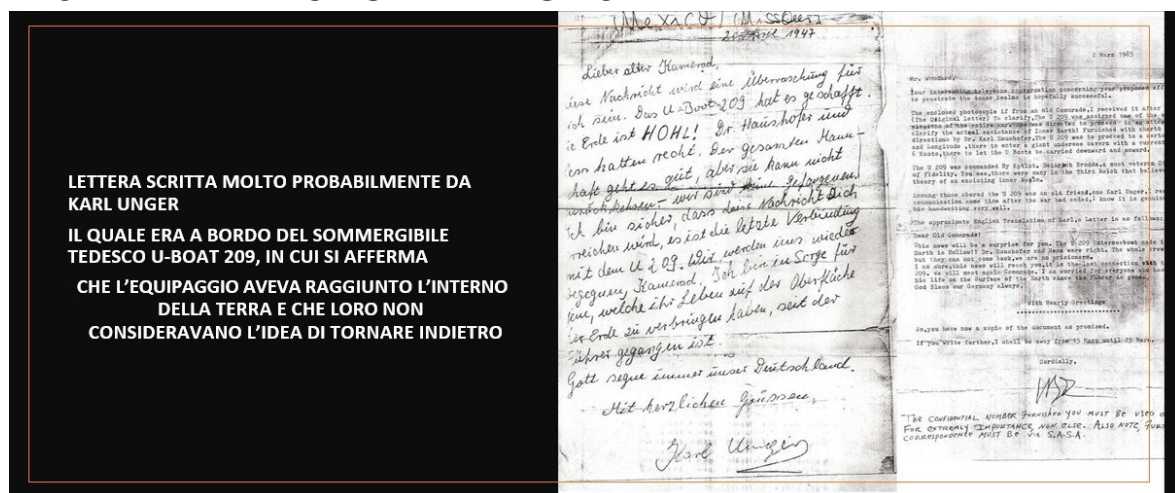 LETTERA SCRITTA MOLTO PROBABILMENTE DA
KARL UNGER
IL QUALE ERA A BORDO DEL SOMMERGIBILE
TEDESCO U-BOAT 209, IN CUI SI AFFERMA
CHE L'EQUIPAGGIO AVEVA RAGGIUNTO L'INTERNO
DELLA TERRA E CHE LORO NON
CONSIDERAVANO L'IDEA DI TORNARE INDIETRO
1947
Lieber alter Kamerad,
Nachricht wird eine Überraschung für
sein. Das U-Boot 209 hat es geschafft.
Erde ist HOHL! Dr. Haushofer und
hatten recht. Der gesamten Mann-
haft geht es gut, aber sie kann nicht
wir sind Gefangenen.
ch bin sicher, dass Nachricht Dich
reichen wird, es ist die letzte Verbindung
mit dem U 209. Wir werden uns wieder
begegnen, Kamerad. Ich bin in Sorge für
welche ihr Leben auf der Oberfläche
der Erde zu verbringen haben, seit der
Führer gegangen ist.
Gott segne immer unser Deutschland.
Mit herzlichen Grüssen,
Karl Unger
2 Mars 1985
Mr.
Your telephone concerning your proposed
to penetrate the inner is hopefully successful.
The enclosed photocopie if from an old Comrade. I received it after
(The Original letter) To clarify, The U 209 was assigned one of the
clarify the actual of Inner Earth! Furnished with
directions by Dr. Karl Haushofer, The U 209 was to proceed to a
and Longitude, there to enter a giant undersea cavern with a current
6 Knots, there to let the U Boote be carried downward and onward.
The U 209 was commanded By Heinrich Brodda, a most veteran
of fidelity. You see, there were many in the Third Reich that
theory of an existing inner
Among those aboard the U 209 was an old friend, one Karl Unger, I
communication some time after the War had ended, I know it is
his handwriting very well.
The approximate English Translation of Karl's Letter is as
Dear Old Comrade!
This news will be a surprise for you. The U 209 made
Earth is Hollow!! Dr. Haushofer and Hess were right. The whole
but they can not come back, we are no prisoners.
I am sure, this news will reach you, it is the last connection with
209. We will meet again Comrade. I am worried for everyone who
his life on the Surface of the Earth since the Führer is gone.
God Bless our Germany always.
With Hearty Greetings
So, you have now a copie of the document as promised.
If you write further, I shall be away from 15 Mars until 25 Mars.
Cordially,
THE CONFIDENTIAL NUMBER FURNISHED YOU MUST BE USED
FOR EXTREMLY IMPORTANCE, NON ELSE. ALSO NOTE,
CORRESPONDENCE MUST BE VIA S.A.S.A.